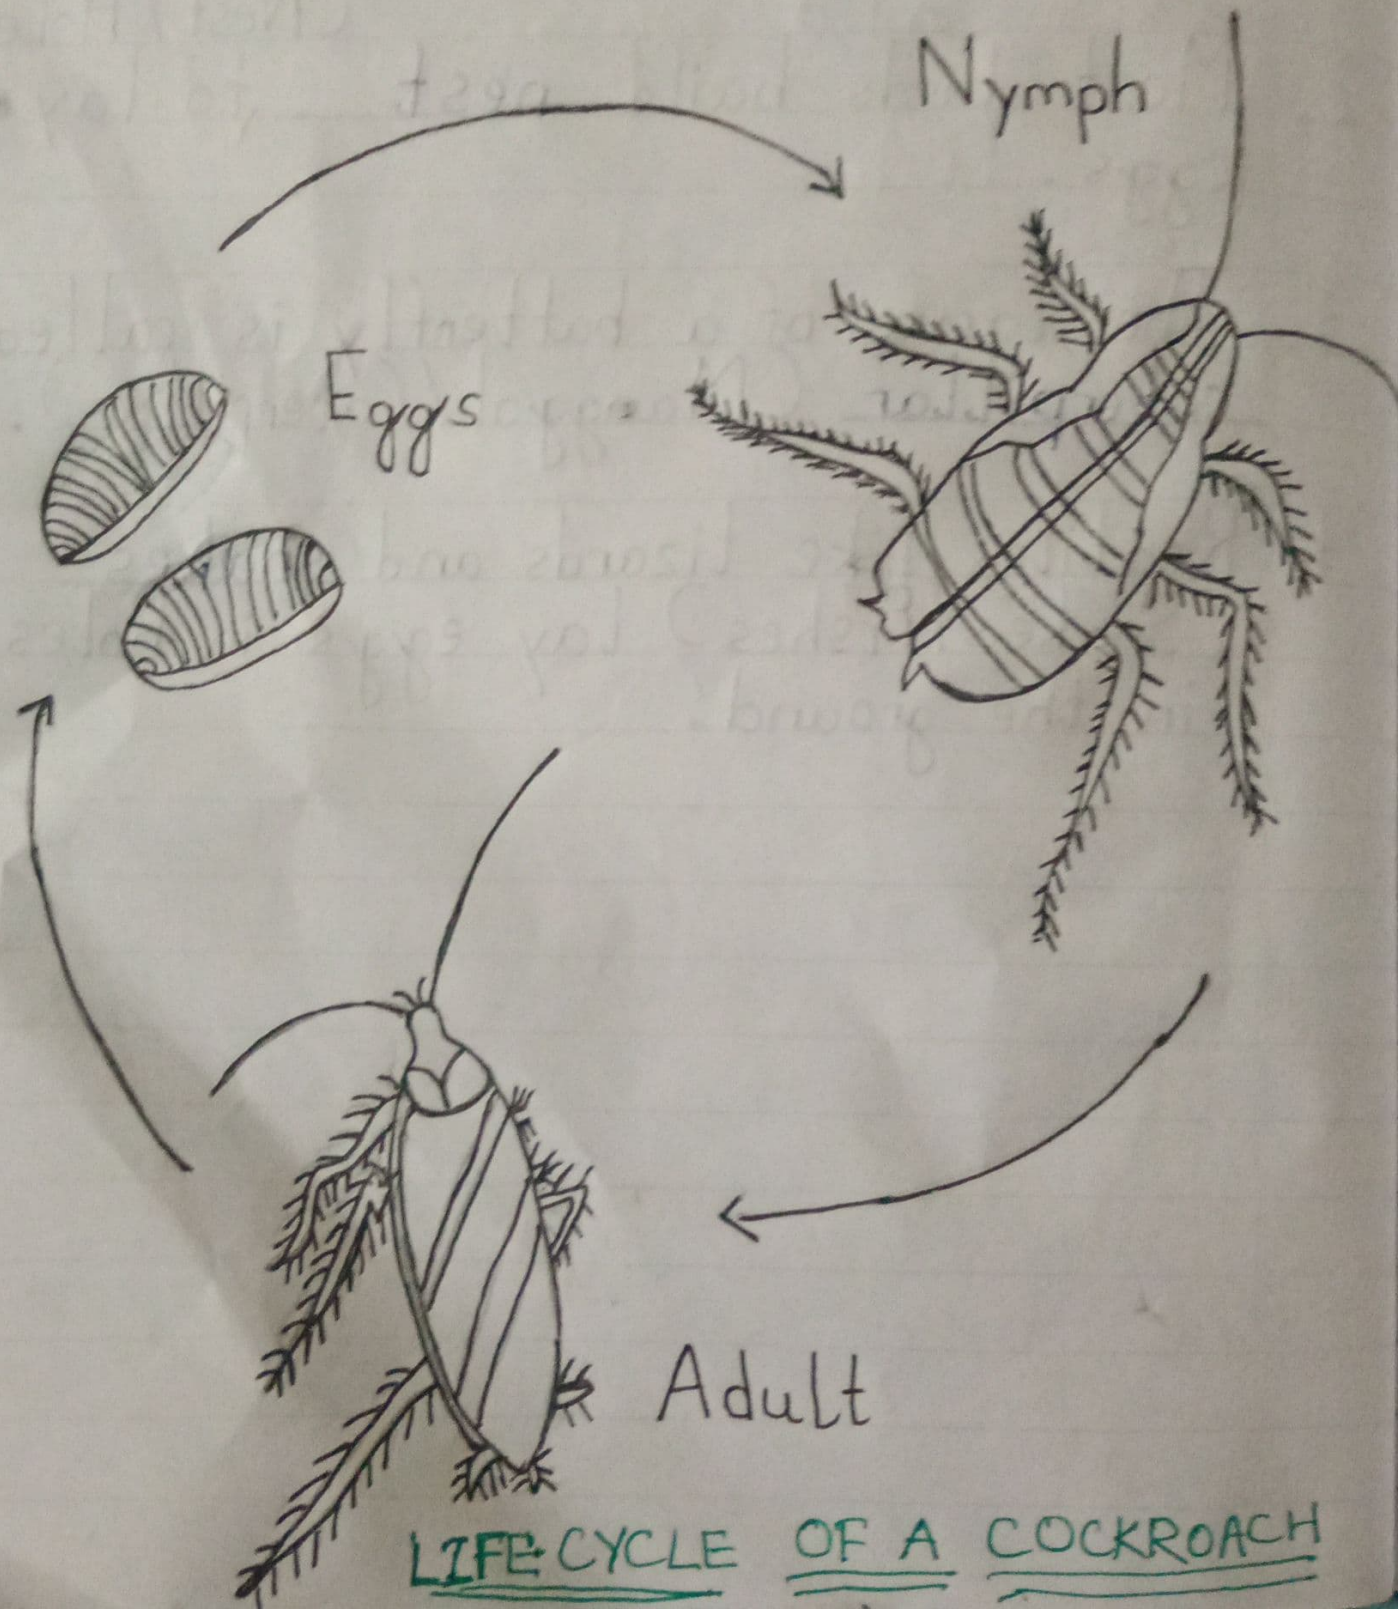 Nymph
Eggs
Adult
LIFE CYCLE OF A COCKROACH